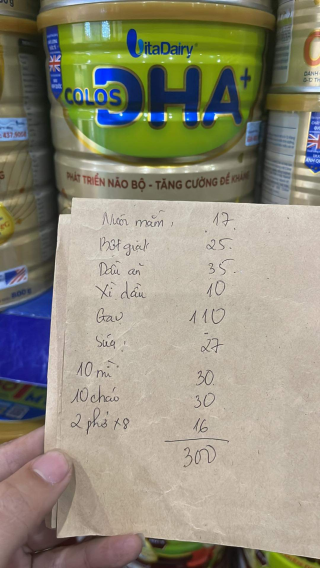 VitaDairy
COLOS
DHA+
PHÁT TRIỂN NÃO BỘ - TĂNG CƯỜNG ĐỀ KHÁNG
800g
Nước mắm, 17.
Bột giặt 25.
Dầu ăn 35.
Xì dầu 10
Gạo 110
Sữa: 27
10 mì 30.
10 cháo 30
2 phở x8 16
300